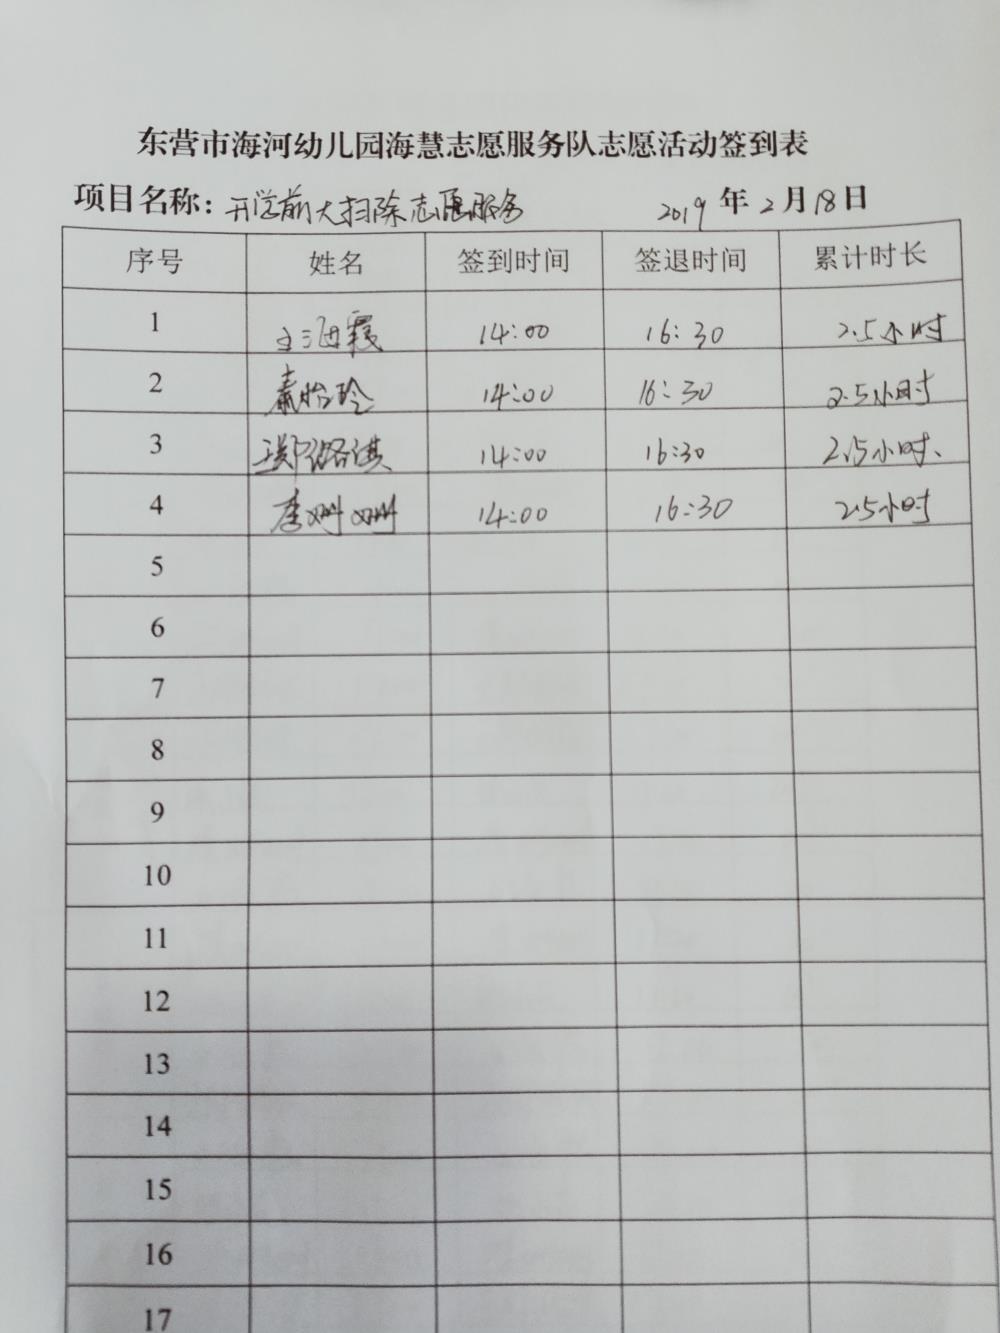 东营市海河幼儿园海慧志愿服务队志愿活动签到表
项目名称：开学前大扫除志愿服务 2019年2月18日
序号 姓名 签到时间 签退时间 累计时长
1 王海霞 14:00 16:30 2.5小时
2 秦怡玲 14:00 16:30 2.5小时
3 郑 14:00 16:30 2.5小时、
4 李姗姗 14:00 16:30 2.5小时
5
6
7
8
9
10
11
12
13
14
15
16
17